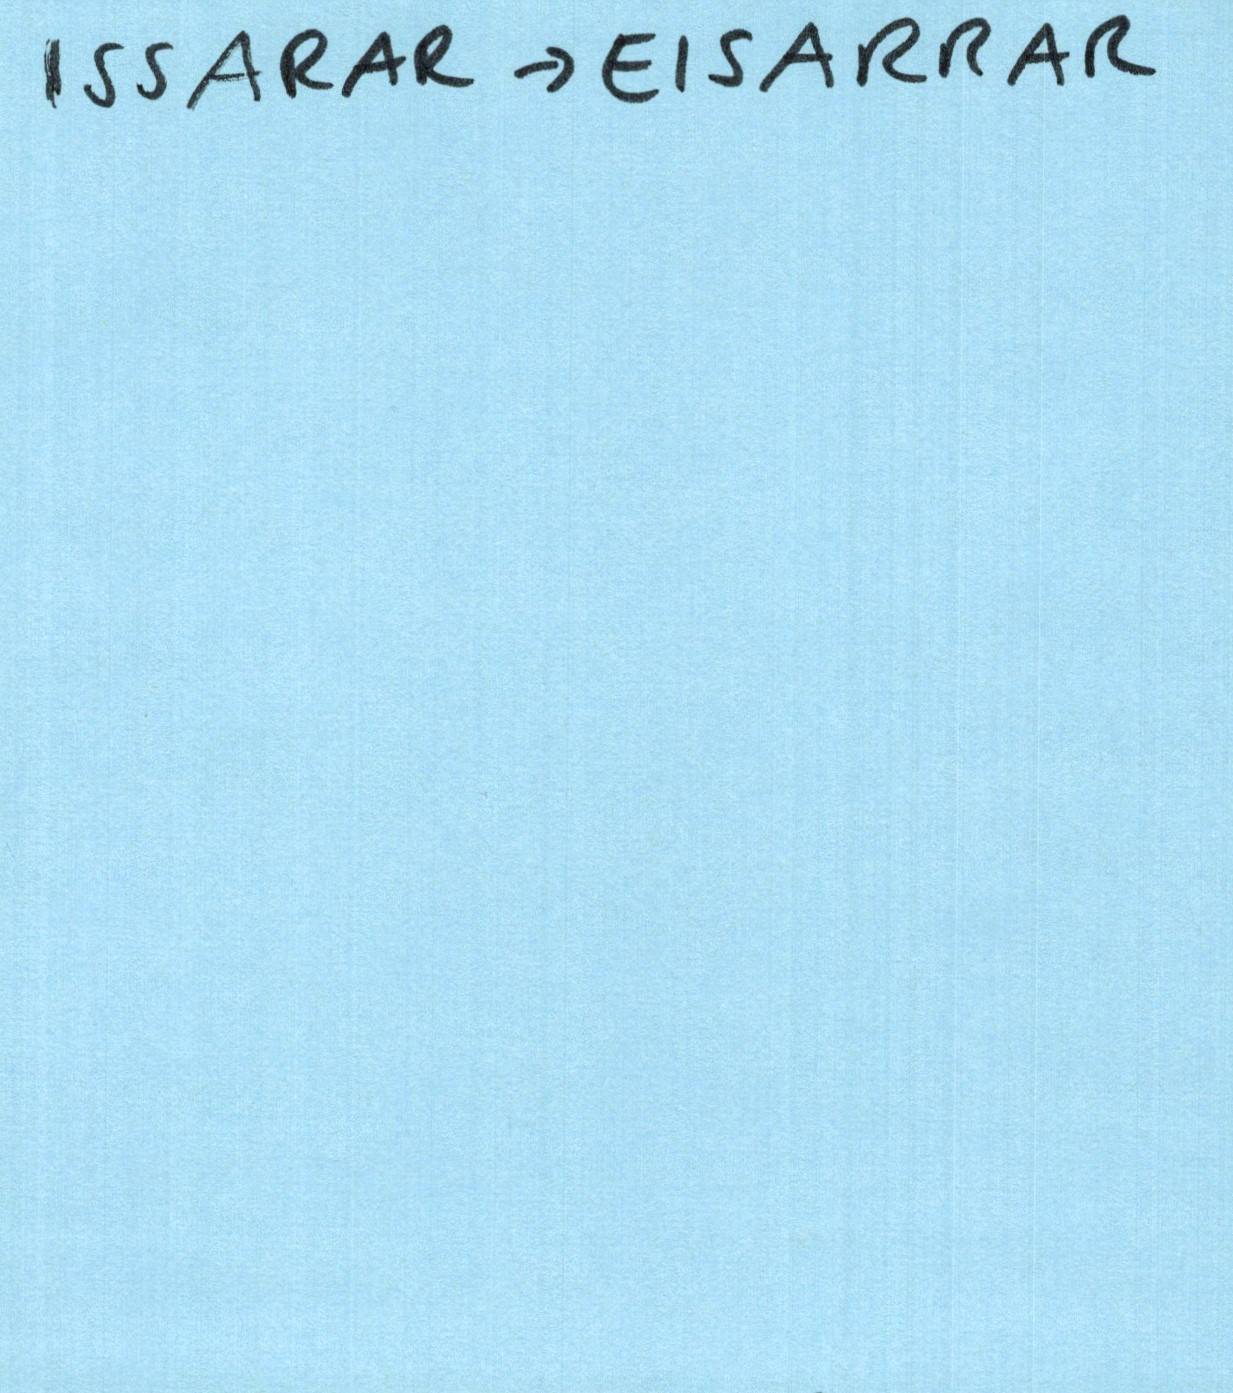 ISSARAR → EISARRAR